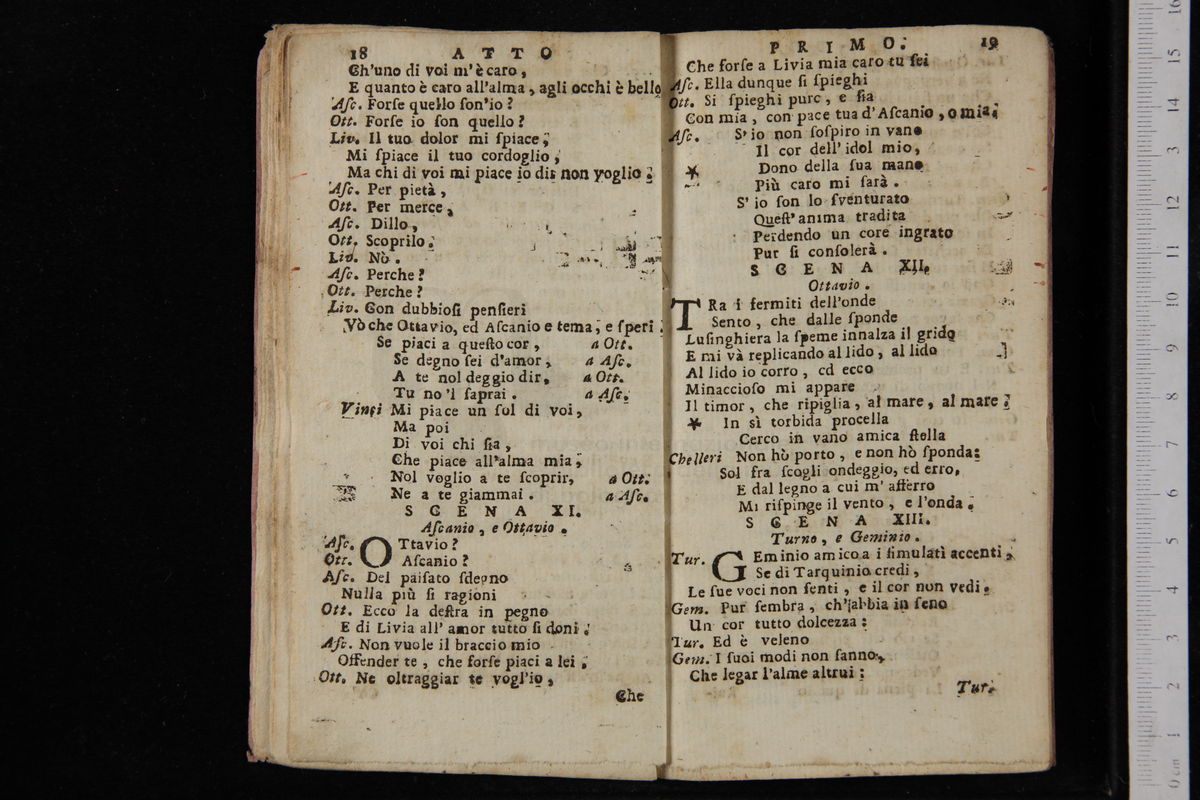 18 ATTO
Ch'uno di voi m'è caro,
E quanto è caro all'alma, agli occhi è bello
Aſc. Forſe quello ſon'io?
Ott. Forſe io ſon quello?
Liv. Il tuo dolor mi ſpiace;
Mi ſpiace il tuo cordoglio;
Ma chi di voi mi piace io dir non voglio.
Aſc. Per pietà,
Ott. Per merce,
Aſc. Dillo,
Ott. Scoprilo.
Liv. Nò.
Aſc. Perche?
Ott. Perche?
Liv. Con dubbioſi penſieri
Vò che Ottavio, ed Aſcanio e tema, e ſperi.
Se piaci a queſto cor, a Ott.
Se degno ſei d'amor, a Aſc.
A te nol deggio dir, a Ott.
Tu no'l ſaprai. a Aſc.
Vinci Mi piace un ſol di voi,
Ma poi
Di voi chi ſia,
Che piace all'alma mia;
Nol voglio a te ſcoprir, a Ott.
Ne a te giammai. a Aſc.
SCENA XI.
Aſcanio, e Ottavio.
Aſc. OTtavio?
Ott. Aſcanio?
Aſc. Del paſſato ſdegno
Nulla più ſi ragioni
Ott. Ecco la deſtra in pegno
E di Livia all' amor tutto ſi doni.
Aſc. Non vuole il braccio mio
Offender te, che forſe piaci a lei.
Ott. Ne oltraggiar te vogl'io,
Che
PRIMO. 19
Che forſe a Livia mia caro tu ſei
Aſc. Ella dunque ſi ſpieghi
Ott. Si ſpieghi pure, e ſia
Con mia, con pace tua d'Aſcanio, o mia.
Aſc. S' io non ſoſpiro in vano
Il cor dell' idol mio,
* Dono della ſua mano
Più caro mi ſarà.
S' io ſon lo ſventurato
Queſt' anima tradita
Perdendo un core ingrato
Pur ſi conſolerà.
SCENA XII.
Ottavio.
TRa i fermiti dell'onde
Sento, che dalle ſponde
Luſinghiera la ſpeme innalza il grido
E mi và replicando al lido, al lido
Al lido io corro, ed ecco
Minaccioſo mi appare
Il timor, che ripiglia, al mare, al mare.
* In sì torbida procella
Cerco in vano amica ſtella
Chelleri Non hò porto, e non hò ſponda:
Sol fra ſcogli ondeggio, ed erro,
E dal legno a cui m' afferro
Mi riſpinge il vento, e l'onda.
SCENA XIII.
Turno, e Geminio.
Tur. GEminio amico a i ſimulati accenti,
Se di Tarquinio credi,
Le ſue voci non ſenti, e il cor non vedi.
Gem. Pur ſembra, ch'abbia in ſeno
Un cor tutto dolcezza:
Tur. Ed è veleno
Gem. I ſuoi modi non ſanno,
Che legar l'alme altrui:
Tur.